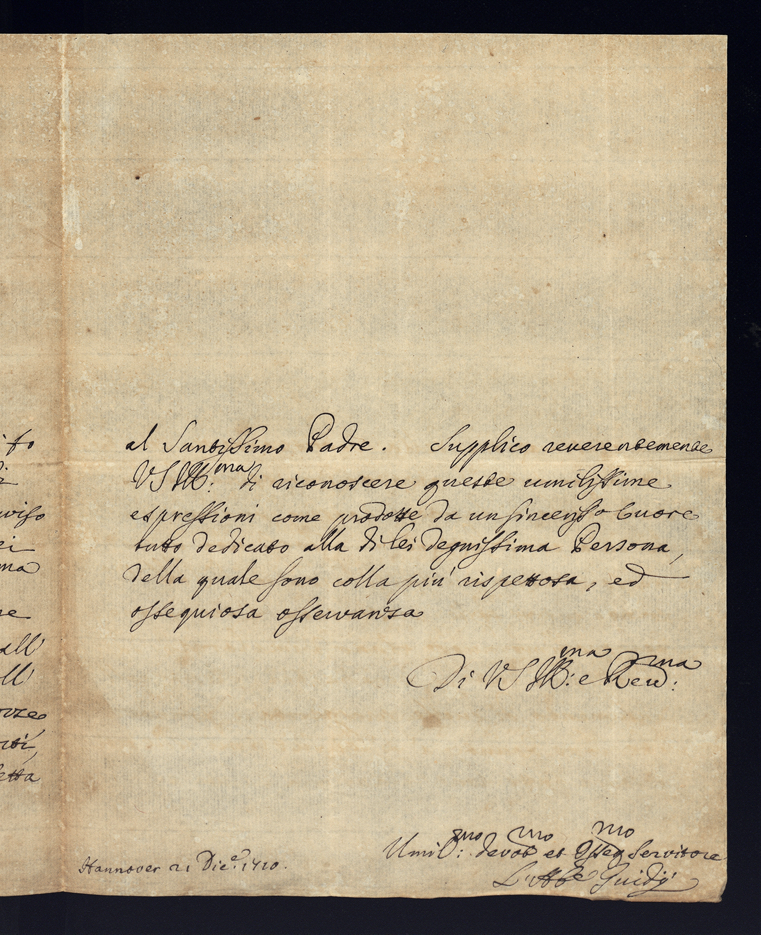 al Santissimo Padre. Supplico reverentemente
VS Ill:ma di riconoscere queste umilissime
espressioni come prodotte da un sincenso Cuore
tutto dedicato alla di lei degnissima Persona,
della quale sono colla più rispettosa, ed
ossequiosa osservanza
Di VS Ill:ma e Rev:ma
Umil:mo devot.mo et Osseq.mo Servitore
L'Abbe Guidi
Hannover 21 Dic.e 1710.
all'
oll'
etta